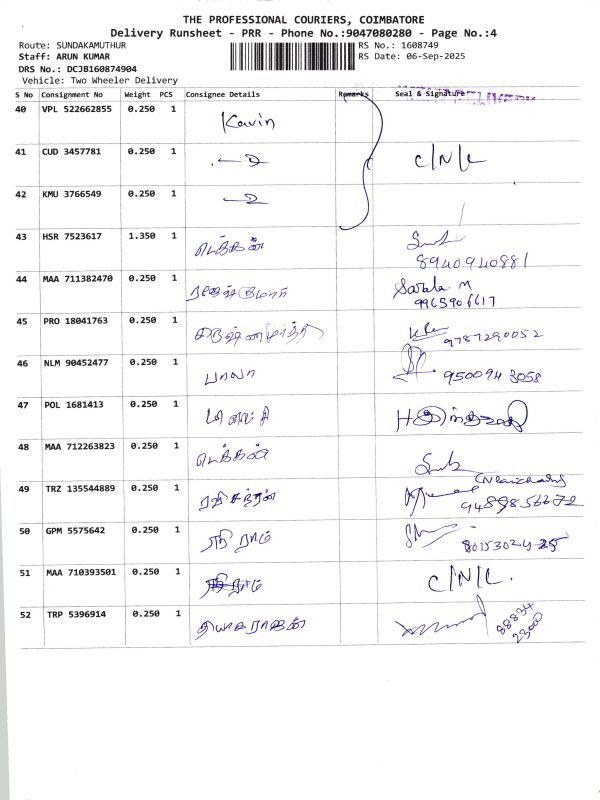 THE PROFESSIONAL COURIERS, COIMBATORE
Delivery Runsheet - PRR - Phone No.:9047080280 - Page No.:4
Route: SUNDAKAMUTHUR RS No.: 1608749
Staff: ARUN KUMAR RS Date: 06-Sep-2025
DRS No.: DCJB160874904
Vehicle: Two Wheeler Delivery
S No Consignment No Weight PCS Consignee Details Remarks Seal & Signature
40 VPL 522662855 0.250 1 Kavin
41 CUD 3457781 0.250 1 C/N/L
42 KMU 3766549 0.250 1
43 HSR 7523617 1.350 1 டெக்கன்
8940940881
44 MAA 711382470 0.250 1 ராஜேஷ்குமார் Sarala M
9965906617
45 PRO 18041763 0.250 1 9787290052
46 NLM 90452477 0.250 1 பாலா 9500943058
47 POL 1681413 0.250 1
48 MAA 712263823 0.250 1 டெக்கன்
49 TRZ 135544889 0.250 1 ரவிசந்திரன்
50 GPM 5575642 0.250 1 ஸ்ரீ ராம்
51 MAA 710393501 0.250 1 ராம் C/N/L.
52 TRP 5396914 0.250 1 தியாகராஜன் 88834
23000